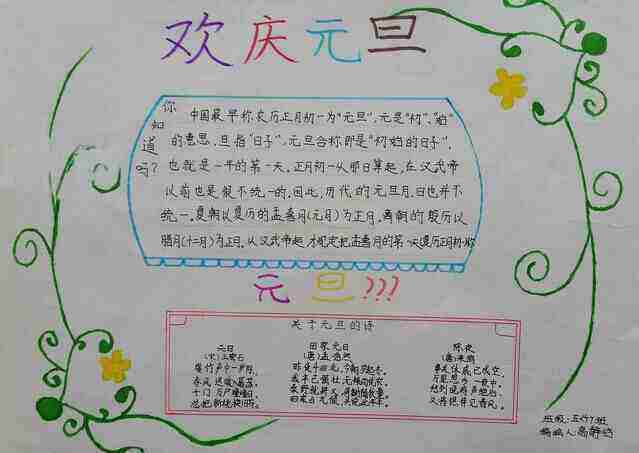 欢庆元旦
你知道吗？
中国最早称农历正月初一为“元旦”，元是“初”、“始”
的意思，旦指“日子”，元旦合称即是“初始的日子”，
也就是一年的第一天。正月初一从那日算起，在汉武帝
以前也是很不统一的，因此，历代的元旦月、日也并不
统一。夏朝以夏历的孟喜月(元月)为正月，商朝的殷历以
腊月(十二月)为正月，从汉武帝起，才规定把孟喜月的第一天夏历正月初一
元旦???
关于元旦的诗
元日
(宋)王安石
爆竹声中一岁除，
春风送暖入屠苏。
千门万户曈曈日，
总把新桃换旧符。
田家元日
(唐)孟浩然
昨夜斗回北，今朝岁起东。
我年已强仕，无禄尚忧农。
除夜
(唐)来鹄
事关休戚已成空，
万里思  一夜中。
愁到晓鸡声绝后，
又将憔悴见春风。
班级：五(7)班
编辑人：高静